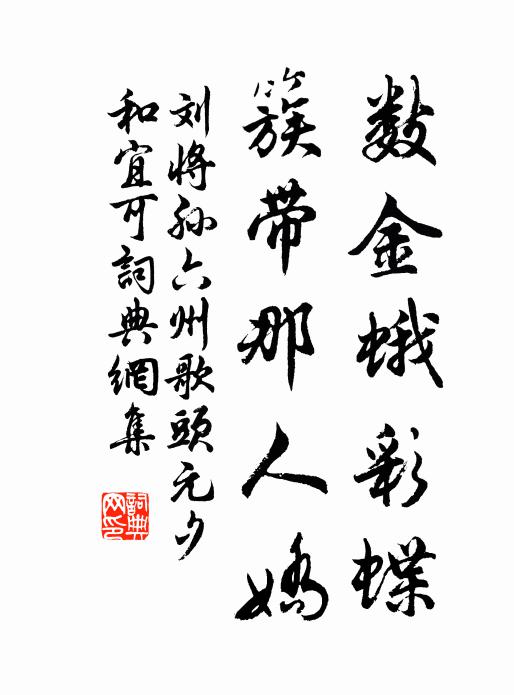 数金蛾彩蝶
簇带那人娇
刘将孙六州歌頭元夕
和宜可詞典網集
詞典网印